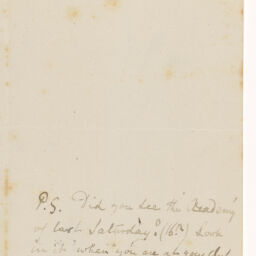 P.S. Did you see the "Academy"
of last Saturday? (16th) Look
in it when you are at your club